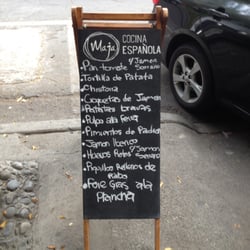 Maja
COCINA
ESPAÑOLA
• Pan tomate y Jamon Serrano
• Tortilla de Patata
• Chistorra
• Croquetas de Jamon
• Patatas bravas
• Pulpo a la feria
• Pimientos de Padron
• Jamon Iberico
• Huevos Rotos y Jamon Serrano
• Piquillos Rellenos de Rabo
• Foie Gras a la
Plancha